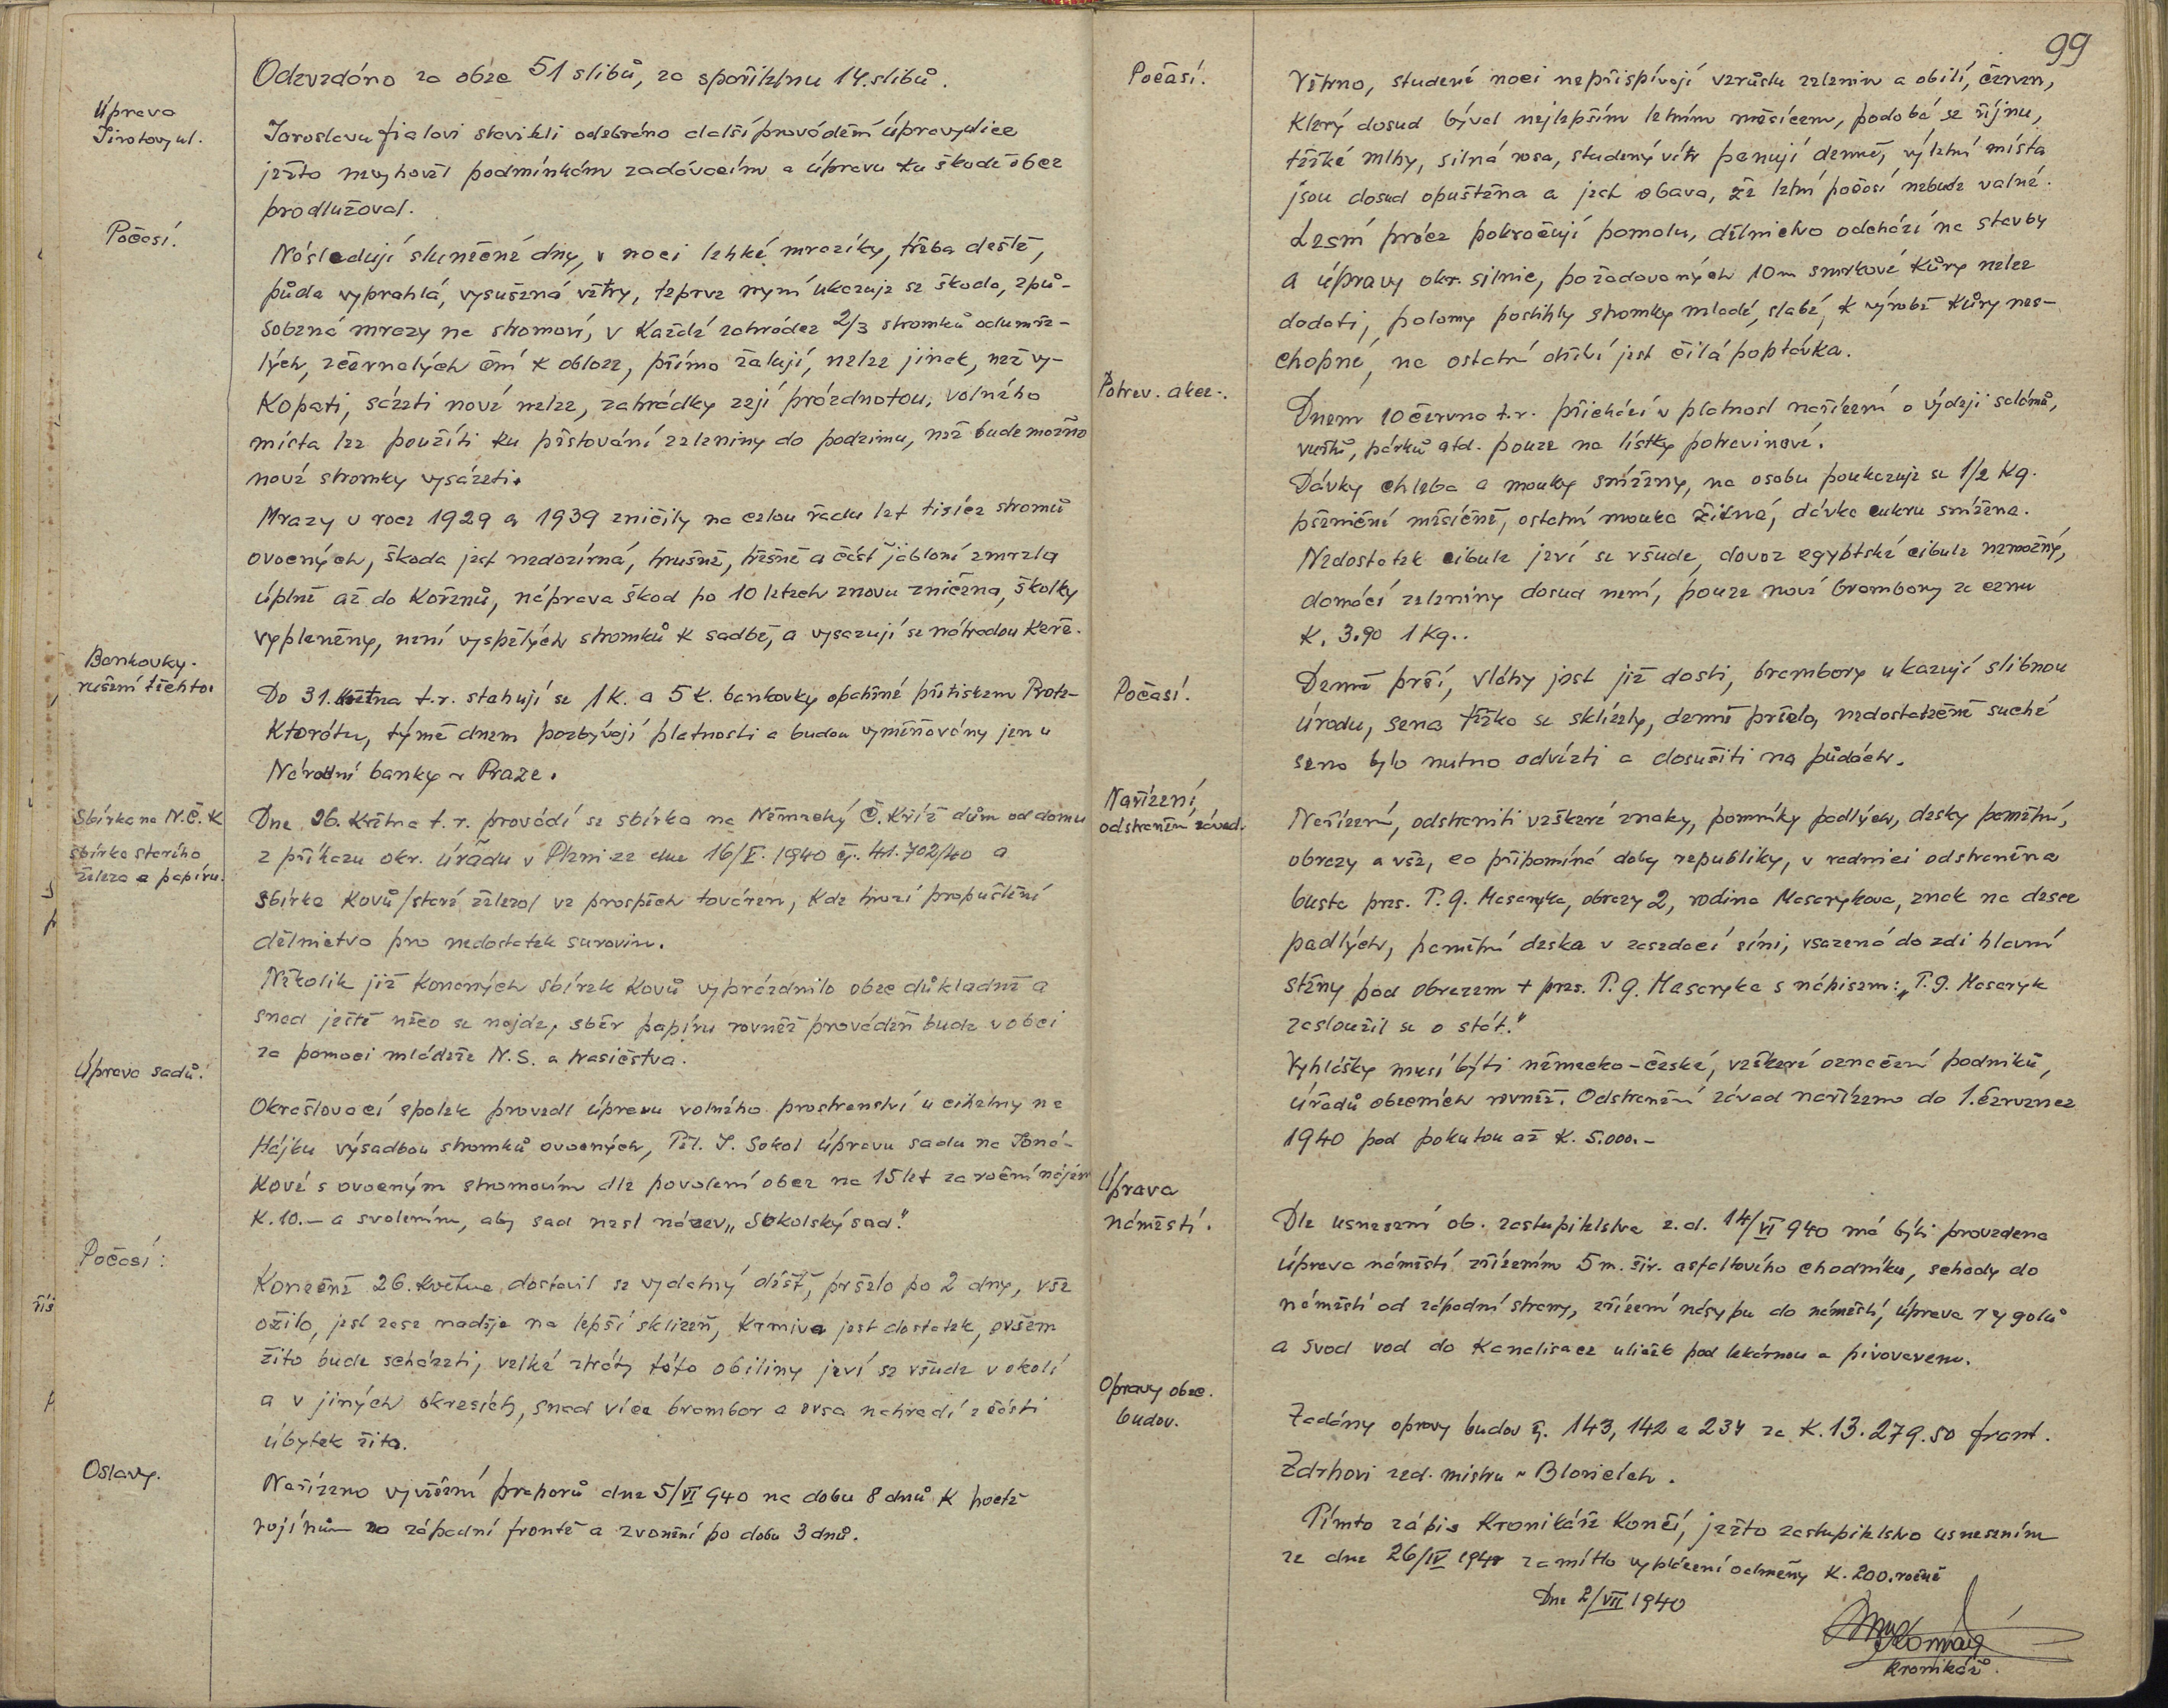 Odevzdáno za obec 51 slibů, za spořitelnu 14. slibů.
Úprava
Jirotovy ul.
Jaroslavu Fialovi staviteli odebráno další provádění úpravy ulice
ježto nevyhověl podmínkám zadávacím a úpravu ku škodě obce
prodlužoval.
Počasí.
Následují slunečné dny, v noci lehké mrazíky, třeba deště,
půda vyprahlá, vysušená větry, teprve nyní ukazuje se škoda, způ-
sobená mrazy na stromoví, v každé zahrádce 2/3 stromků odumře-
lých, zčernalých ční k obloze, přímo žalují, nelze jinak, než vy-
kopati, sázeti nové nelze, zahrádky zejí prázdnotou, volného
místa lze použíti ku pěstování zeleniny do podzimu, než bude možno
nové stromky vysázeti.
Mrazy v roce 1929 a 1939 zničily na celou řadu let tisíce stromů
ovocných, škoda jest nedozírná, hrušně, třešně a část jabloní zmrzla
úplně až do kořenů, náprava škod po 10 letech znovu zničena, školky
vypleněny, není vyspělých stromků k sadbě, a vysazují se náhradou keře.
Bankovky.
rušení těchto.
Do 31. května t.r. stahují se 1 K. a 5 K. bankovky opatřné přetiskem Prote-
ktorátu, týmž dnem pozbývají platnosti a budou vyměňovány jen u
Národní banky v Praze.
Sbírka na N.Č.K
sbírka starého
železa a papíru.
Dne 26. května t.r. provádí se sbírka na Německý Č. kříž dům od domu
z příkazu okr. úřadu v Plzni ze dne 16/V. 1940 čj. 41.702/40 a
sbírka kovů /staré železo/ ve prospěch továren, kde hrozí propuštění
dělnictva pro nedostatek surovin.
Několik již konaných sbírek kovů vyprázdnilo obec důkladně a
snad ještě něco se najde, sběr papíru rovněž prováděn bude v obci
za pomoci mládeže N.S. a hasičstva.
Úprava sadů.
Okrašlovací spolek provedl úpravu volného prostranství u cihelny na
Hájku výsadbou stromků ovocných, Těl. J. Sokol úpravu sadu na
kové s ovocným stromovím dle povolení obce na 15 let za roční nájem
K. 10.- a svolením, aby sad nesl název „Sokolský sad."
Počasí:
Konečně 26. května dostavil se vydatný déšť, pršelo po 2 dny, vše
ožilo, jest zase naděje na lepší sklizeň, krmiva jest dostatek, ovšem
žito bude scházeti, velké ztráty této obiliny jeví se všude v okolí
a v jiných okresích, snad více brambor a ovsa nahradí z části
úbytek žita.
Oslavy.
Nařízeno vyvěšení praporů dne 5/VI 940 na dobu 8 dnů k poctě
vojínům na západní frontě a zvonění po dobu 3 dnů.
99
Počasí.
Větrno, studené noci nepřispívají vzrůstu zelenin a obilí, červen,
který dosud býval nejlepším letním měsícem, podobá se říjnu,
těžké mlhy, silná rosa, studený vítr panují denně, výletní místa
jsou dosud opuštěna a jest obava, že letní počasí nebude valné.
Lesní práce pokračují pomalu, dělnictvo odchází na stavby
a úpravy okr. silnic, požadovaných 10 m smrkové kůry nelze
dodati, polomy postihly stromky mladé, slabé, k výrobě kůry nes-
chopné, na ostatní dříví jest čilá poptávka.
Potrav. akce-.
Dnem 10 června t.r. přichází v platnost nařízení o výdeji salámů,
vuřtů, párků atd. pouze na lístky potravinové.
Dávky chleba a mouky sníženy, na osobu poukazuje se 1/2 kg.
pšeničné měsíčně, ostatní mouka žitná, dávka cukru snížena.
Nedostatek cibule jeví se všude, dovoz egyptské cibule nemožný,
domácí zeleniny dosud není, pouze nové brambory za cenu
K. 3.90 1 kg..
Počasí.
Denně prší, vláhy jest již dosti, brambory ukazují slibnou
úrodu, sena těžko se sklízely, denně pršelo, nedostatečně suché
seno bylo nutno odvézti a dosušiti na půdách.
Nařízení,
odstranění závad.
Nařízení, odstraniti veškeré znaky, pomníky padlých, desky pamětní,
obrazy a vše, co připomíná doby republiky, v radnici odstraněna
busta pres. T.G. Masaryka, obrazy 2, rodina Masarykova, znak na desce
padlých, pamětní deska v zasedací síni, vsazená do zdi hlavní
stěny pod obrazem + pres. T.G. Masaryka s nápisem: „T.G. Masaryk
zasloužil se o stát."
Vyhlášky musí býti německo-české, veškeré označení podniků,
úřadů obecních rovněž. Odstranění závad nařízeno do 1. července
1940 pod pokutou až K. 5.000.-
Úprava
náměstí.
Dle usnesení ob. zastupitelstva z.d. 14/VI 940 má býti provedena
úprava náměstí zřízením 5 m. šir. asfaltového chodníku, schody do
náměstí od západní strany, zřízení násypu do náměstí, úprava rygolů
a svod vod do kanalisace uliček pod lekárnou a pivovarem.
Opravy obec.
budov.
Zadány opravy budov čj. 143, 142 a 234 za K. 13.279.50 Frant.
Zdrhovi zed. mistru v Blovicích.
Tímto zápis kronikáře končí, ježto zastupitelstvo usnesením
ze dne 26/IV 1940 zamítlo vyplácení odměny K. 200. ročně
Dne 2/VII 1940
kronikář.